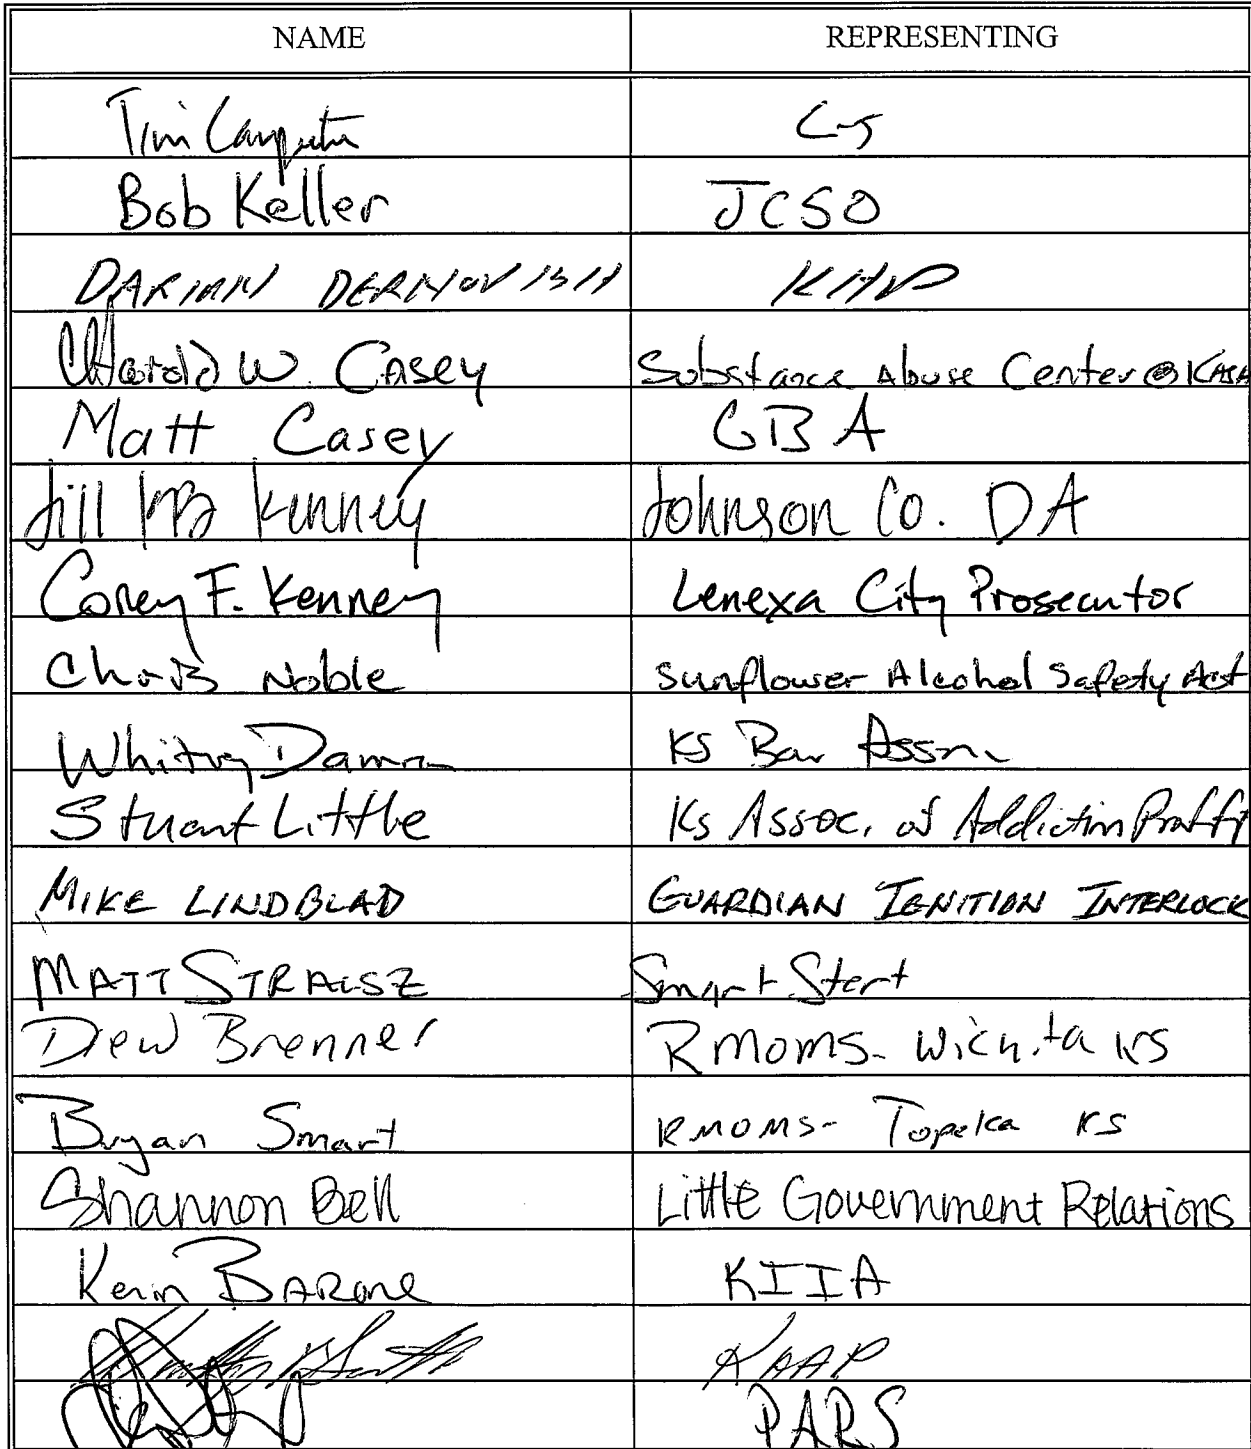 NAME REPRESENTING
Tim Carpenter CJ
Bob Keller JCSO
DARIAN DERNOVISH KHP
Harold W. Casey Substance Abuse Center @ KASA
Matt Casey GBA
Jill Kenney Johnson Co. DA
Corey F. Kenney Lenexa City Prosecutor
Chris Noble Sunflower Alcohol Safety Act
Whitney Damron KS Bar Assn.
Stuart Little Ks Assoc. of Addiction
MIKE LINDBLAD GUARDIAN IGNITION INTERLOCK
MATT STRAUSZ Smart Start
Drew Brenner RMOMS- Wichita KS
Bryan Smart RMOMS- Topeka KS
Shannon Bell Little Government Relations
Kevin BARONE KIIA
KAAP
PARS